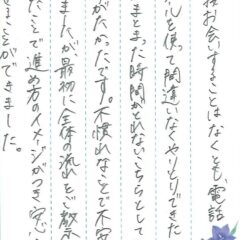 接お会いすることはなくとも、電話
ルを使って間違いなくやりとりできた
まとまった時間がとれないこちらとして
がたかったです。不慣れなことで不安
ましたが最初に全体の流れをご教示
たことで進め方のイメージがつき安心
ることができました。